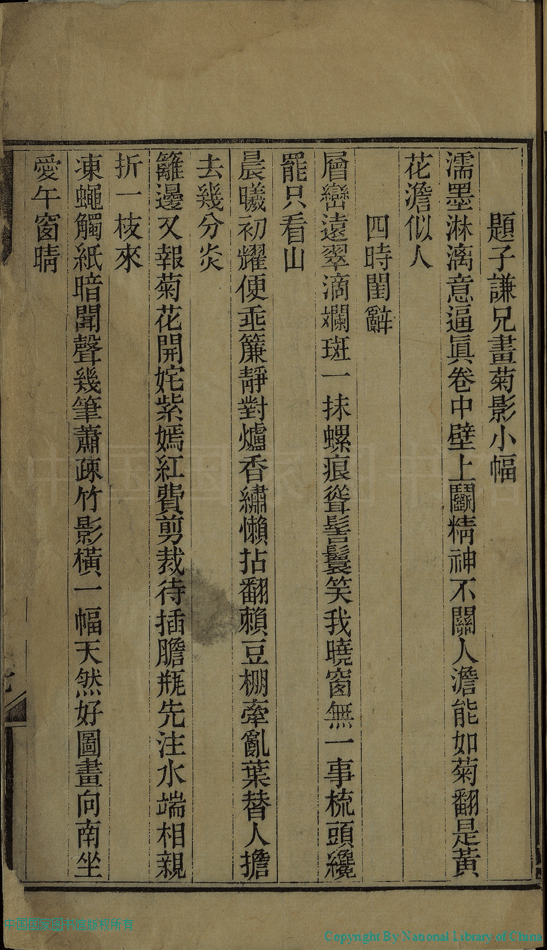 題子謙兄畫菊影小幅
濡墨淋漓意逼眞卷中壁上鬭精神不關人澹能如菊翻是黃
花澹似人
四時閨辭
層巒遠翠滴斕斑一抹螺痕聳髻鬟笑我曉窗無一事梳頭纔
罷只看山
晨曦初耀便垂簾靜對爐香繡懶拈翻賴豆棚牽亂葉替人擔
去幾分炎
籬邊又報菊花開姹紫嫣紅費剪裁待插膽瓶先注水端相親
折一枝來
凍蠅觸紙暗聞聲幾筆蕭疎竹影橫一幅天然好圖畫向南坐
愛午窗晴
中国国家图书馆
中国国家图书馆版权所有
Copyright By National Library of China